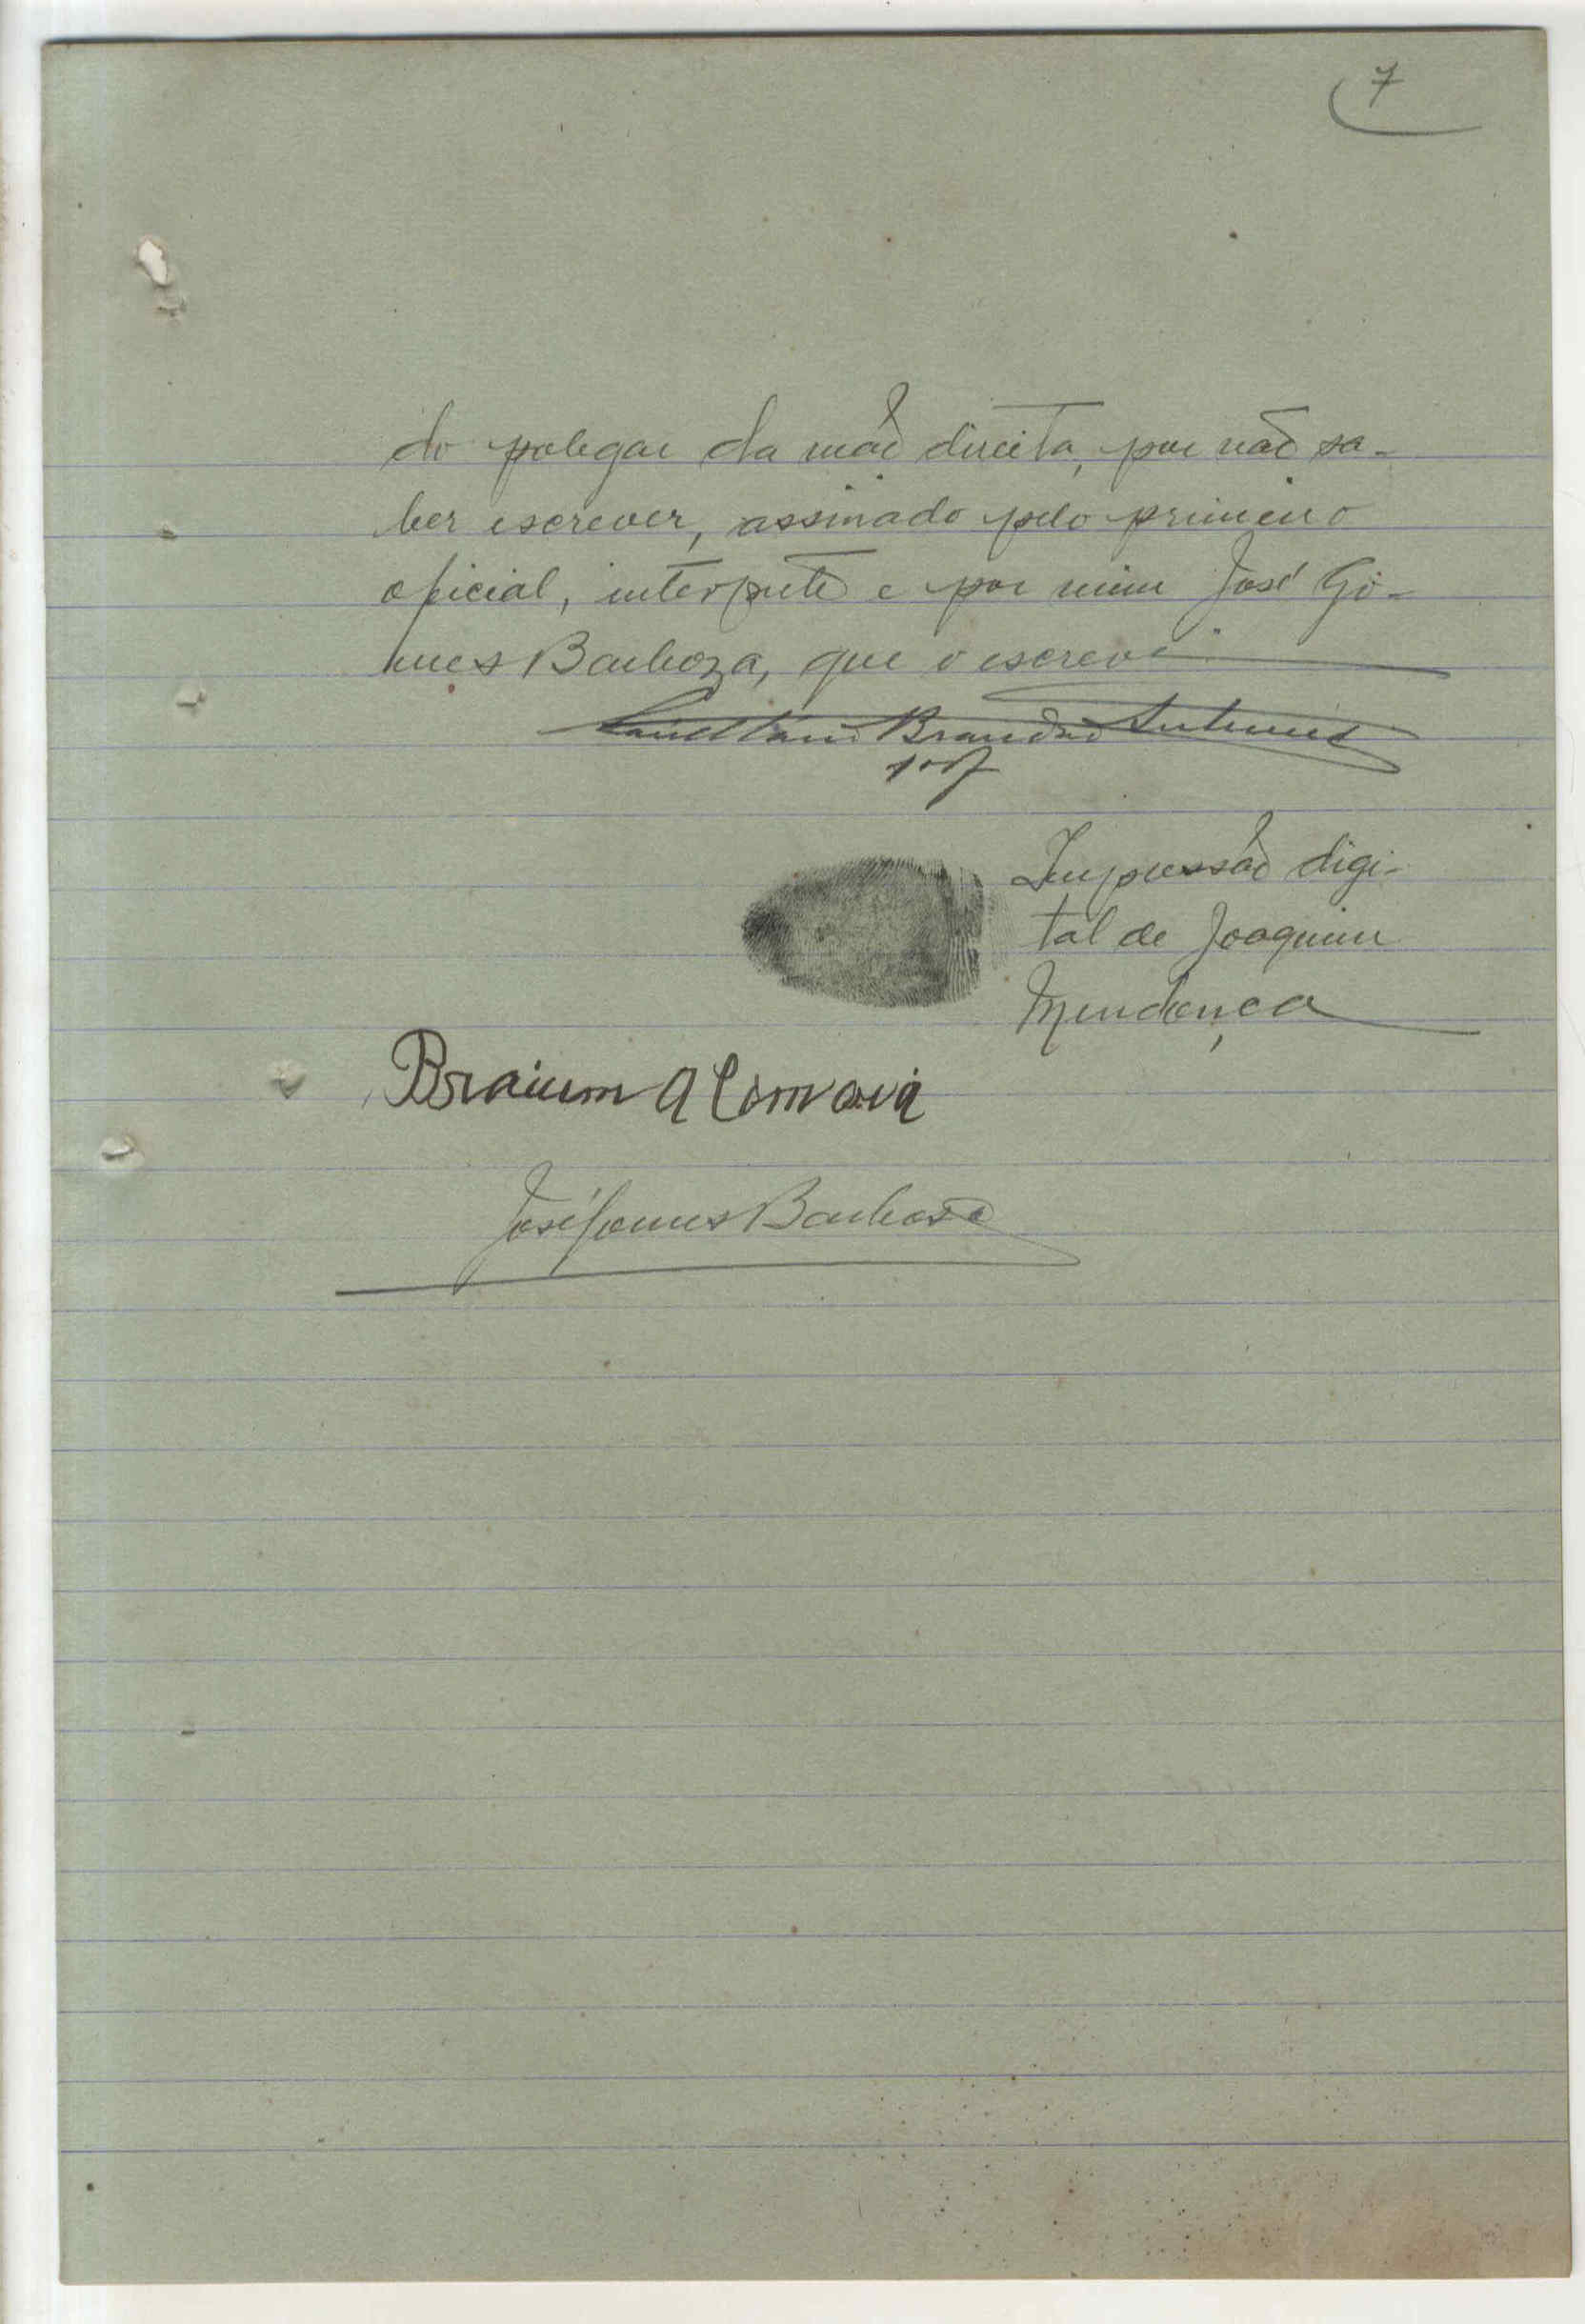 7
do polegar da mão direita, por não sa-
ber escrever, assinado pelo primeiro
oficial, interprete e por mim José Go-
mes Barboza, que o escrevi
Brandão Antunes
Impressão digi-
tal de Joaquim
Mendonça
Braium
José Gomes Barbosa